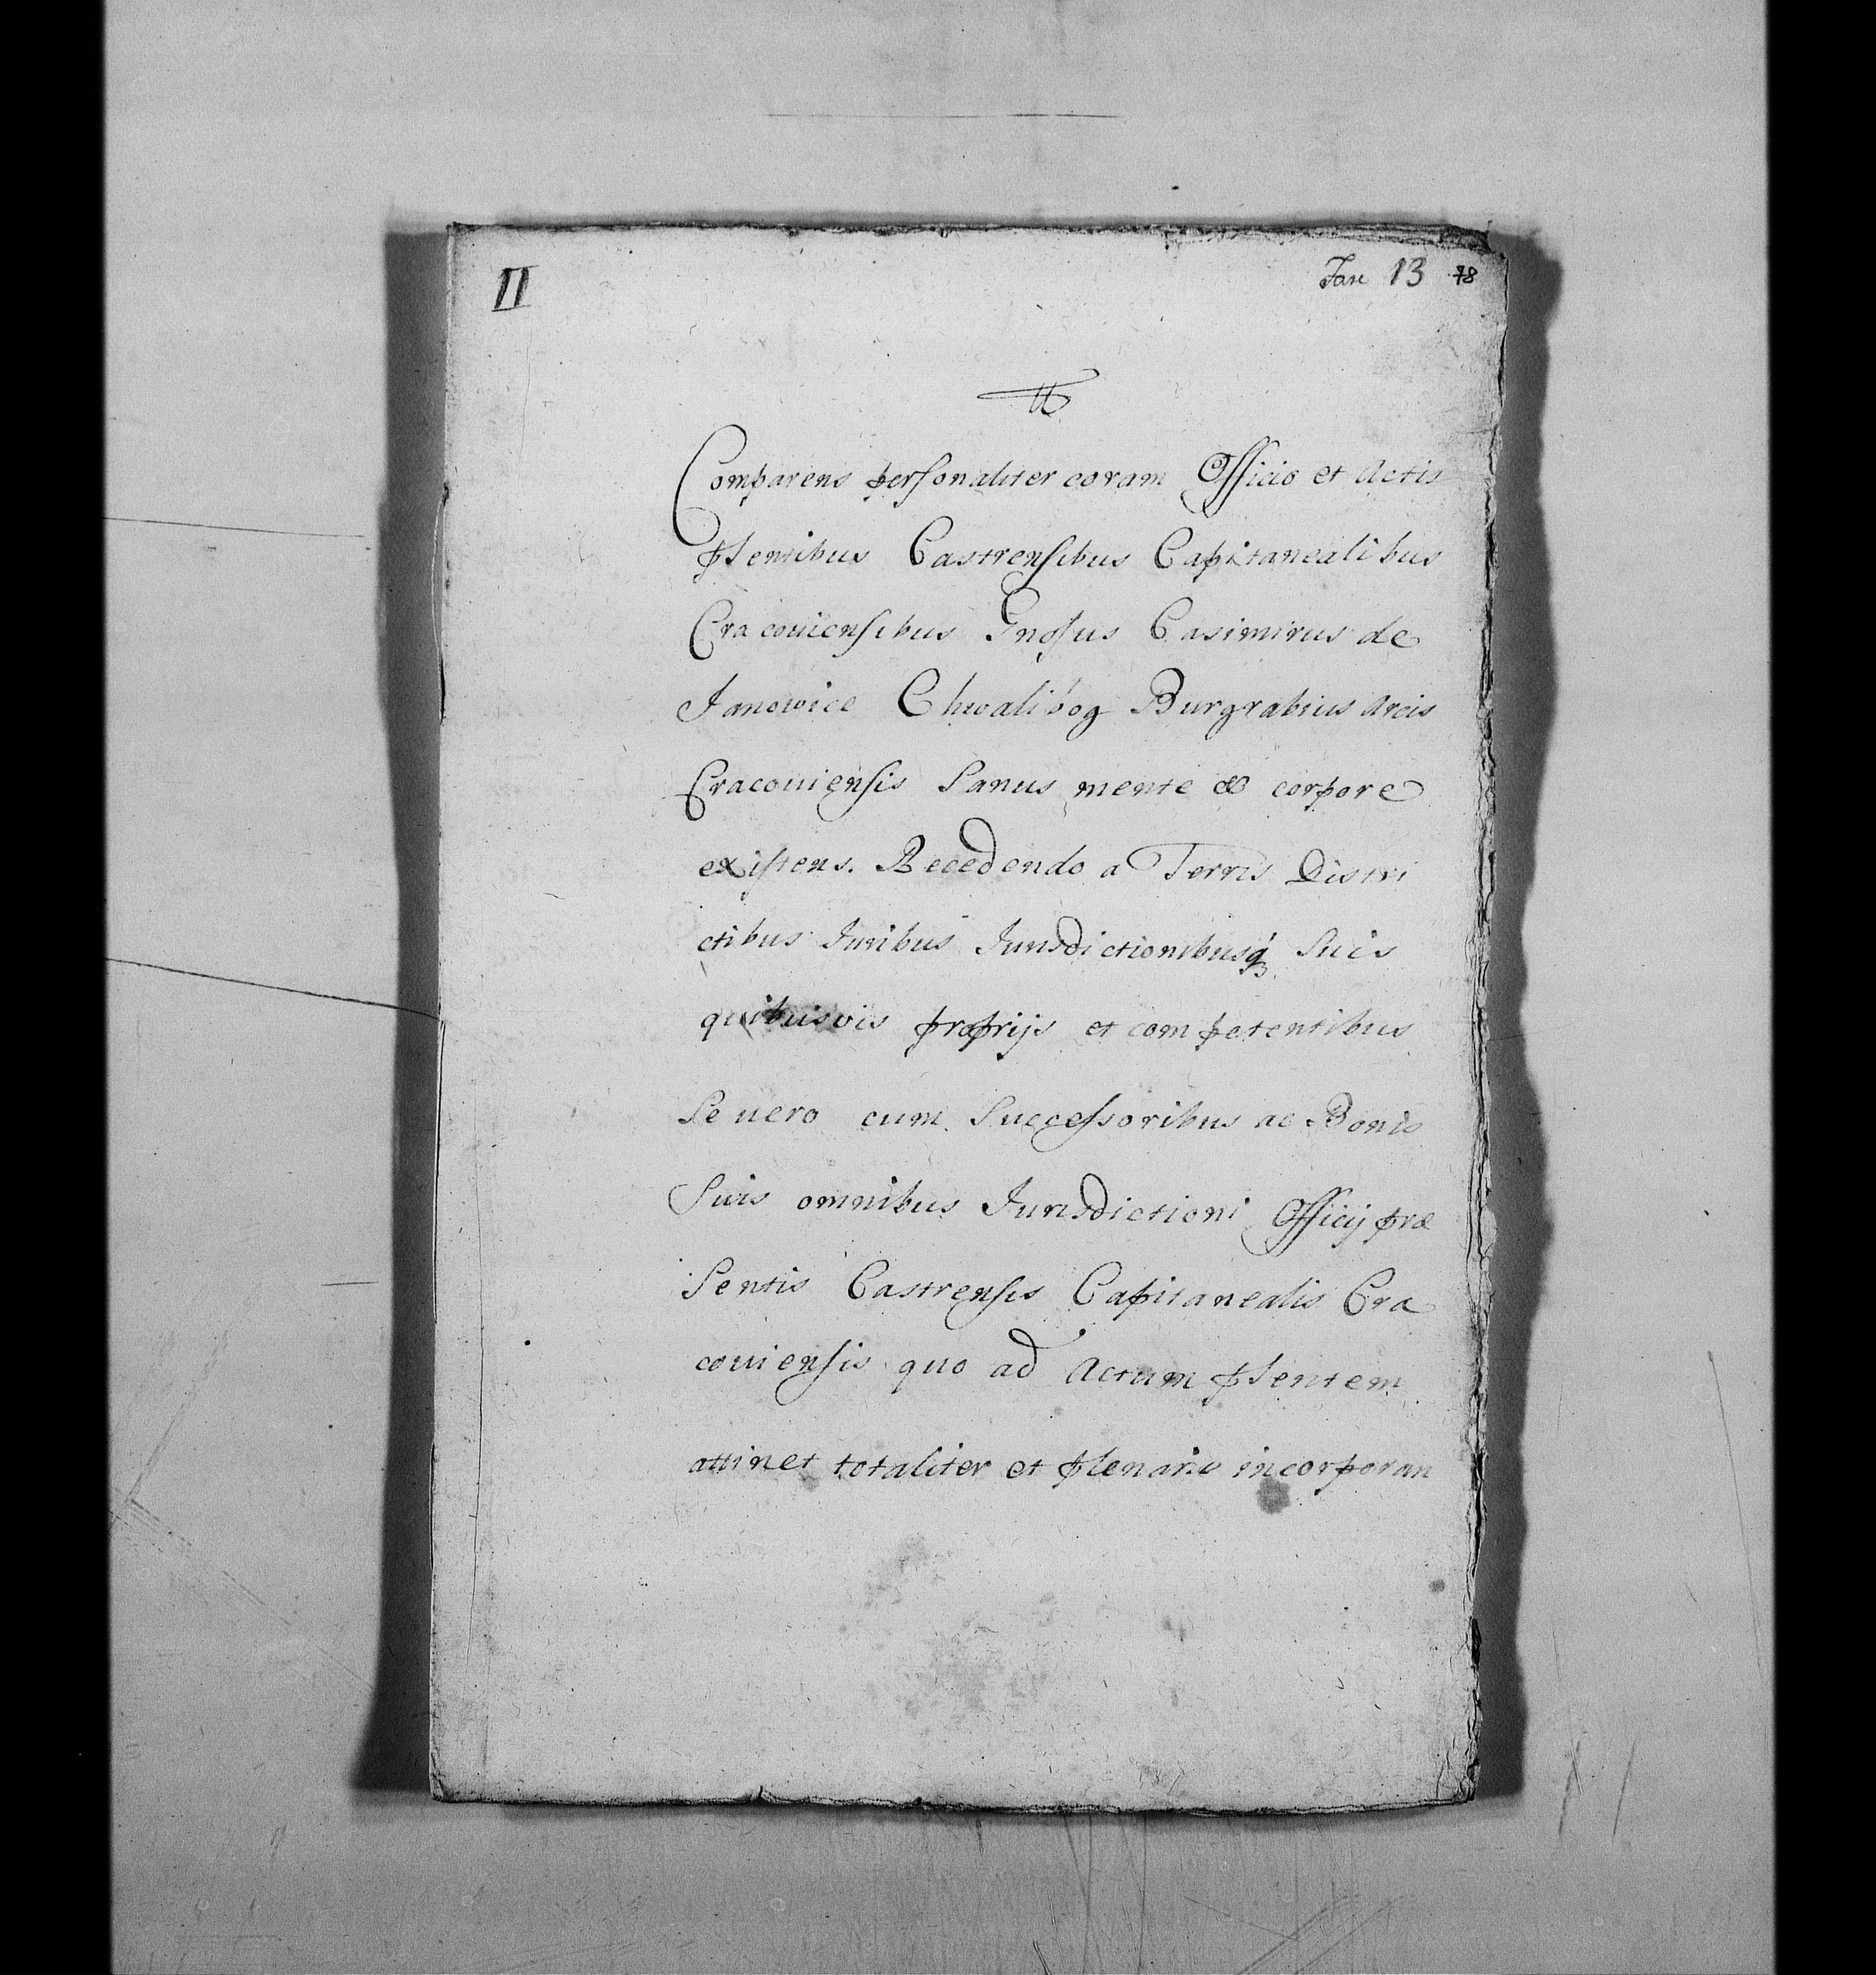 II
Jan 13 78
Comparens personaliter coram Officio et Actis
pſentibus Castrensibus Capitanealibus
Cracouiensibus Gnosus Casimirus de
Janowice Chwalibog Burgrabius Arcis
Cracouiensis Sanus mente & corpore
existens. Recedendo a Terris Distri
ctibus Juribus Jurisdictionibusq Suis
quibusvis proprijs et competentibus
Se uero cum Successoribus ac Bonis
Suis omnibus Jurisdictioni Officij præ
Sentis Castrensis Capitanealis Cra
couiensis quo ad Actum pſentem
attinet totaliter et plenarie incorporan